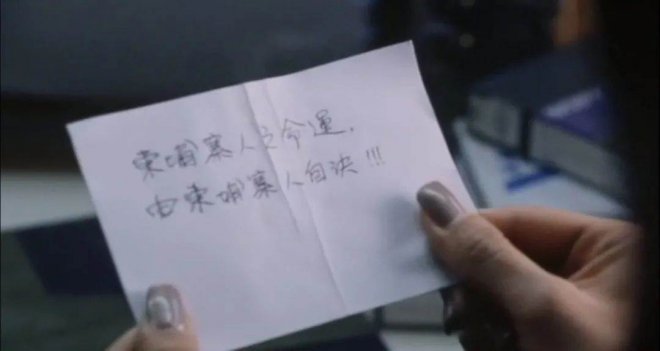 柬埔寨人之命運，
由柬埔寨人自决!!!